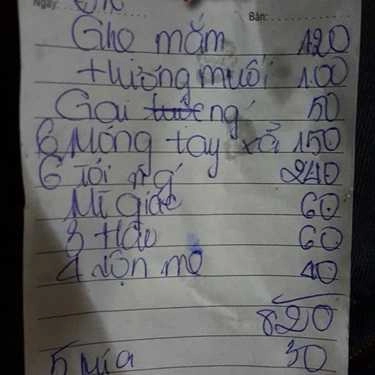 Ngày: Bàn:
Ghẹ mắm 120
Hương muối 100
Gai nướng 50
6 Móng tay xả 150
6 Tỏi ng 240
Mì giác 60
3 Hàu 60
4 lộn me 40
820
5 mía 30